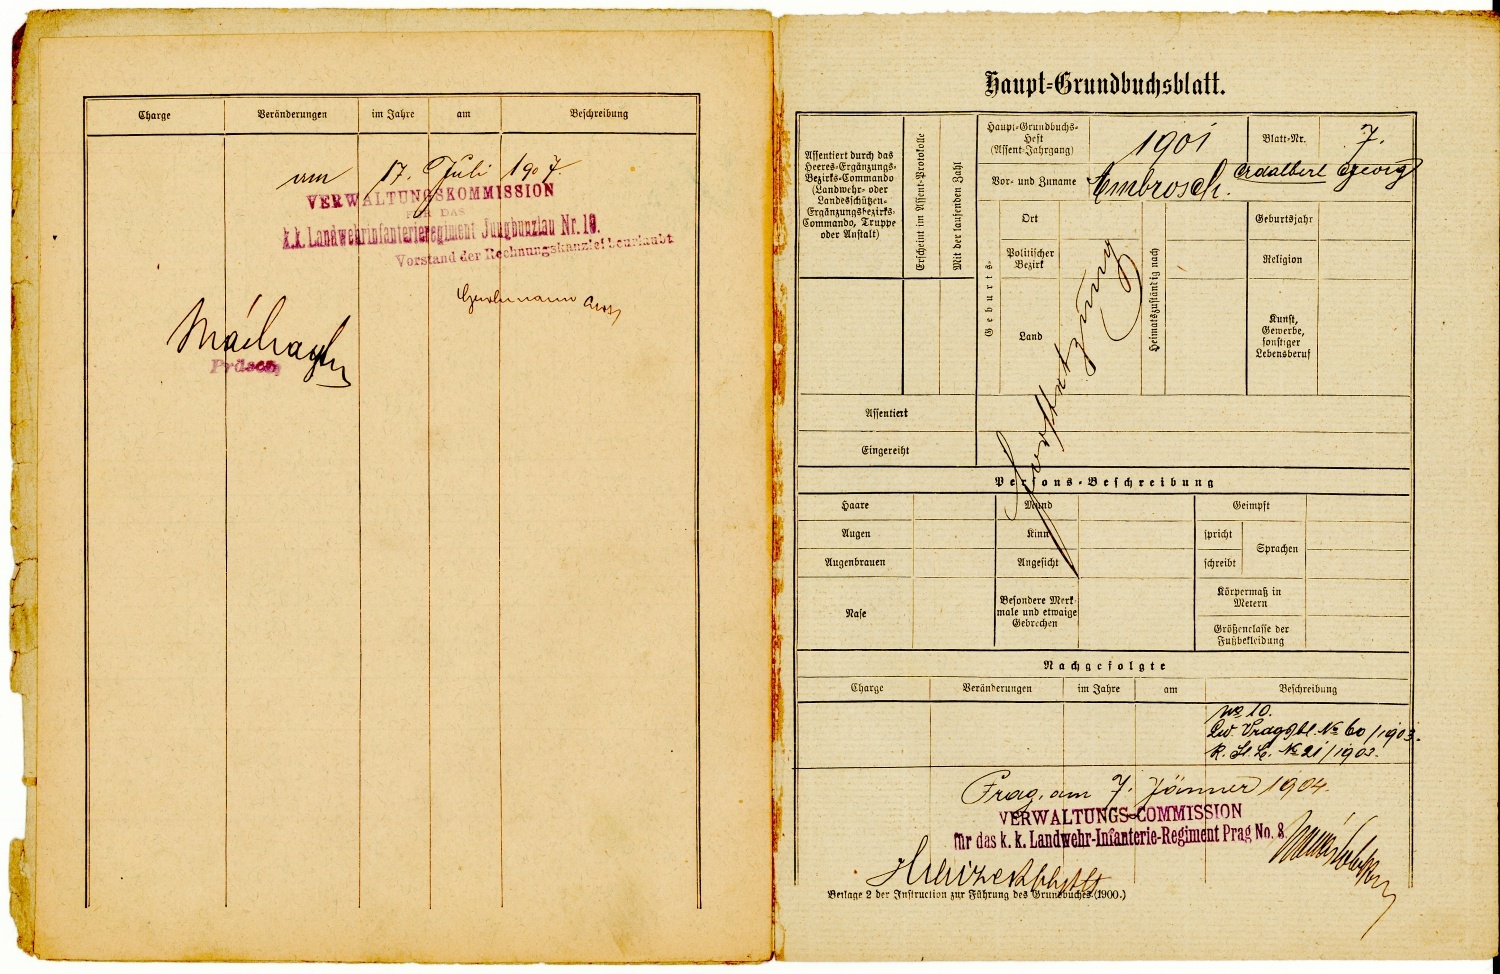 Charge Veränderungen im Jahre am Beschreibung
am 17. Juli 1907.
VERWALTUNGSKOMMISSION
FÜR DAS
k.k. Landwehrinfanterieregiment Jungbunzlau Nr. 10.
Vorstand der Rechnungskanzlei beurlaubt
Präses
Haupt-Grundbuchsblatt.
Assentiert durch das
Heeres-Ergänzungs-
Bezirks-Commando
(Landwehr- oder
Landesschützen-
Ergänzungsbezirks-
Commando, Truppe
oder Anstalt)
Erscheint im Assent-Protokolle
Mit der laufenden Zahl
Haupt-Grundbuchs-
Heft
(Assent-Jahrgang)
1901
Blatt-Nr.
7.
Vor- und Zuname
Ambrosch. Adalbert Georg
Geburts-
Ort
Politischer
Bezirk
Land
Heimatszuständig nach
Geburtsjahr
Religion
Kunst,
Gewerbe,
sonstiger
Lebensberuf
Fortsetzung
Assentiert
Eingereiht
Persons-Beschreibung
Haare Mund Geimpft
Augen Kinn spricht
Sprachen
Augenbrauen Angesicht schreibt
Nase
Besondere Merk-
male und etwaige
Gebrechen
Körpermaß in
Metern
Größenclasse der
Fußbekleidung
Nachgefolgte
Charge Veränderungen im Jahre am Beschreibung
No 10.
No 60/1903.
No 21/1903.
Prag, am 7. Jänner 1904.
VERWALTUNGS-COMMISSION
für das k. k. Landwehr-Infanterie-Regiment Prag No. 8.
Beilage 2 der Instruction zur Führung des Grundbuches (1900.)